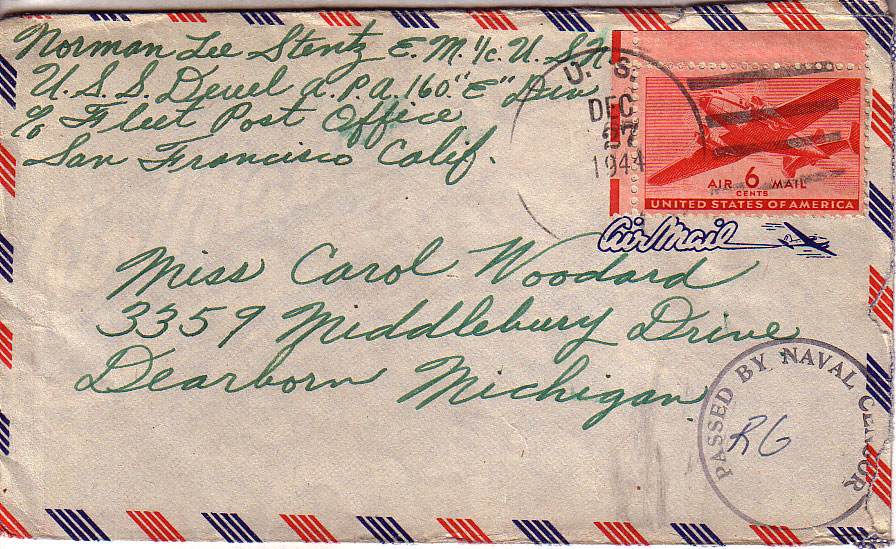 Norman Lee Stentz E.M. 1/c. U.S.N.
U.S.S. Deuel A.P.A. 160. "E" Div
c/o Fleet Post Office
San Francisco Calif.
U. S.
DEC
27
1944
AIR 6 MAIL
CENTS
UNITED STATES OF AMERICA
Air Mail
Miss Carol Woodard
3359 Middlebury Drive
Dearborn Michigan
PASSED BY NAVAL CENSOR
RG